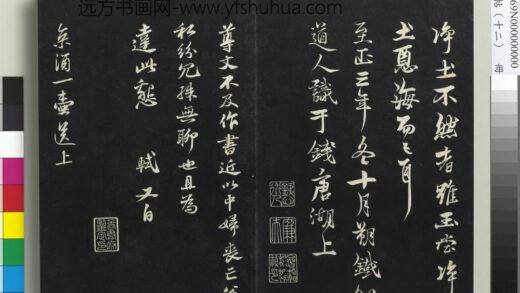 远方书画网- www.yfshuhua.com
69N000000000
帖（十二）
净土不然者雖玉堂净
土恶海而已耳
至正三年冬十月朔鐵
道人識于錢唐湖上
尊丈不及作書近以中婦喪亡
私紛冗殊無聊也且為
達此懇 軾又白
京酒一壺送上